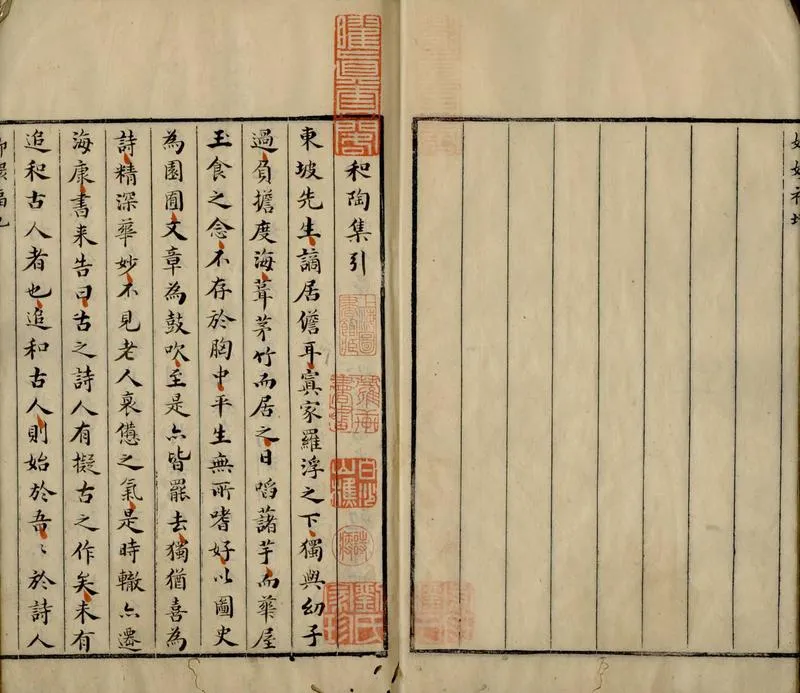 和陶集引
上海圖書館藏
白沙山樵
東坡先生謫居儋耳寘家羅浮之下獨與幼子
過負擔度海葺茅竹而居之日啗藷芋而華屋
玉食之念不存於胸中平生無所嗜好以圖史
為園囿文章為鼓吹至是亦皆罷去獨猶喜為
詩精深華妙不見老人衰憊之氣是時轍亦遷
海康書来告曰古之詩人有擬古之作矣未有
追和古人者也追和古人則始於吾〻於詩人